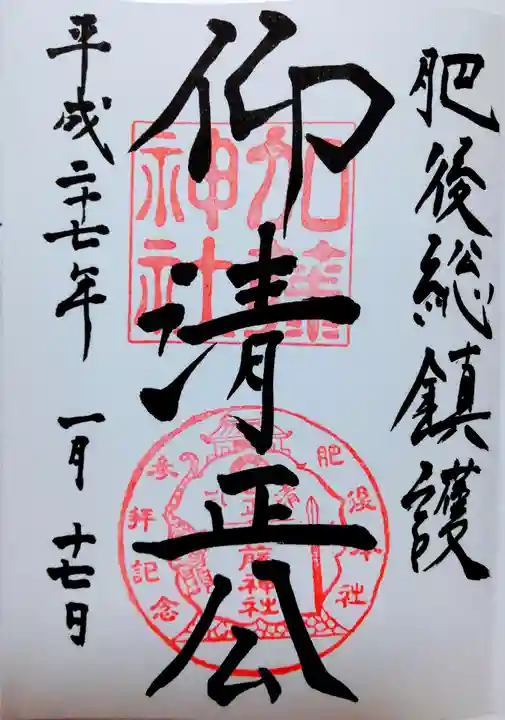 肥後総鎮護
仰清正公
平成二十七年 一月 十七日
加藤神社
肥後本社
加藤神社
参拝記念